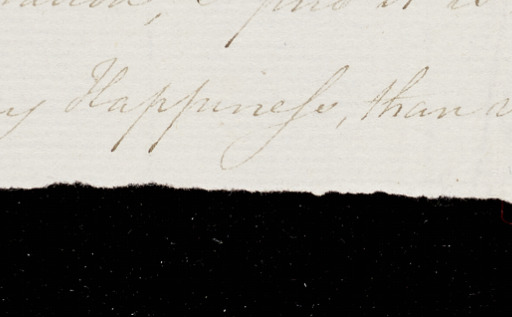 I find it is
y Happineſs, than